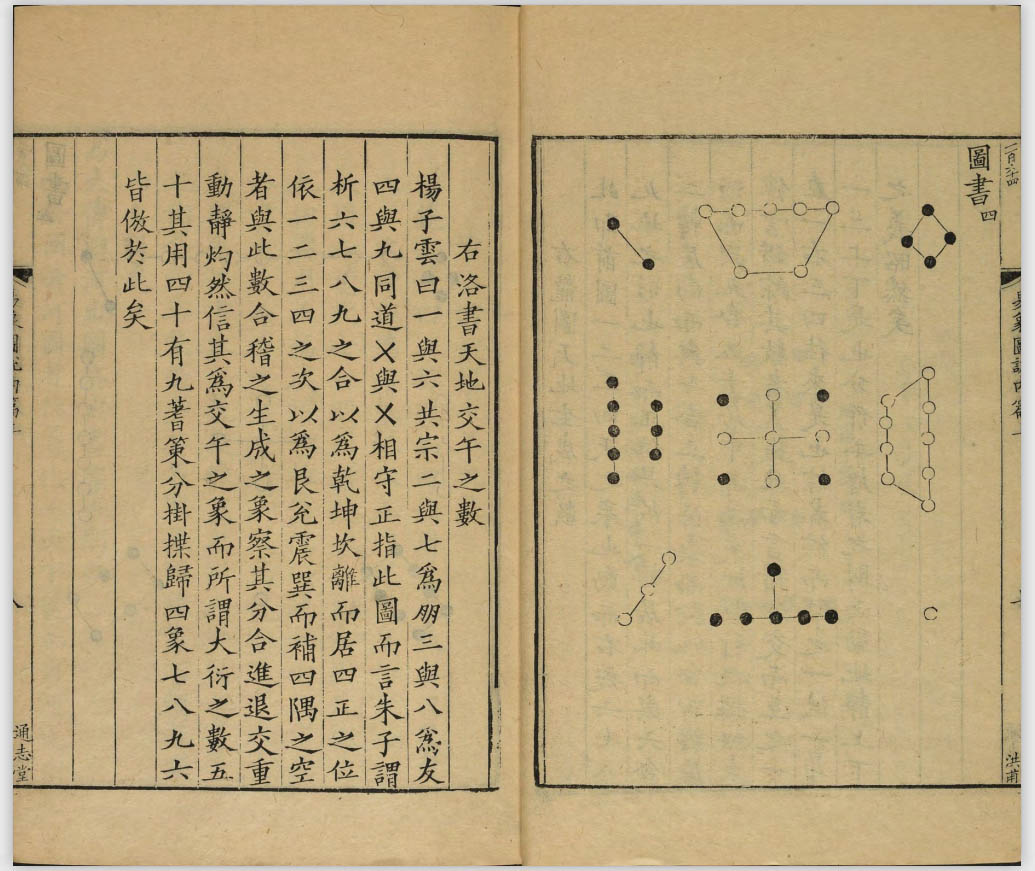 圖書四
洪甫
右洛書天地交午之數
楊子雲曰一與六共宗二與七爲朋三與八爲友
四與九同道㐅與㐅相守正指此圖而言朱子謂
析六七八九之合以爲乾坤坎離而居四正之位
依一二三四之次以爲艮兌震巽而補四隅之空
者與此數合稽之生成之象察其分合進退交重
動靜灼然信其爲交午之象而所謂大衍之數五
十其用四十有九蓍策分掛揲歸四象七八九六
皆倣於此矣
八
通志堂